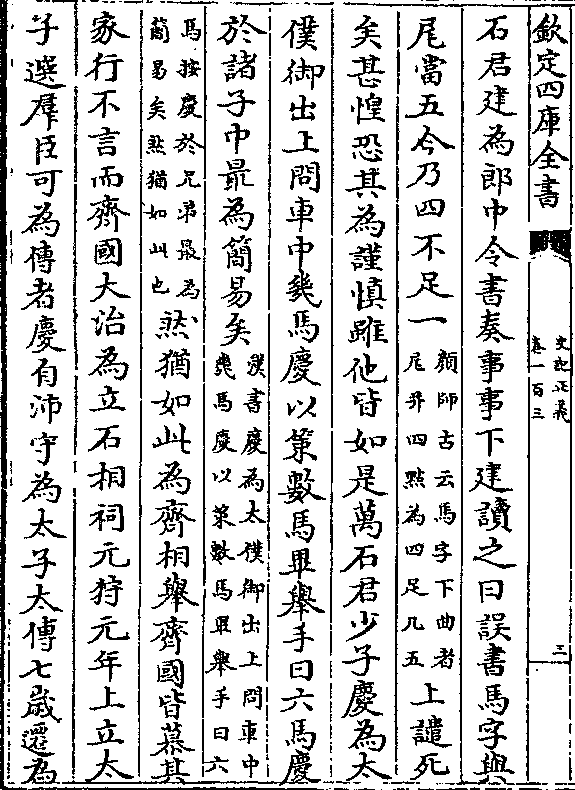 欽定四庫全書
史記正義
卷一百三
三
石君建為郎中令書奏事事下建讀之曰誤書馬字與
尾當五今乃四不足一
顔師古云馬字下曲者
尾并四點為四足凡五
上譴死
矣甚惶恐其為謹慎雖他皆如是萬石君少子慶為太
僕御出上問車中幾馬慶以策數馬畢舉手曰六馬慶
於諸子中最為簡易矣
漢書慶為太僕御出上問車中
幾馬慶以策數馬畢舉手曰六
馬按慶於兄弟最為
簡易矣然猶如此也
然猶如此為齊相舉齊國皆慕其
家行不言而齊國大治為立石相祠元狩元年上立太
子選羣臣可為傅者慶自沛守為太子太傅七歲遷為